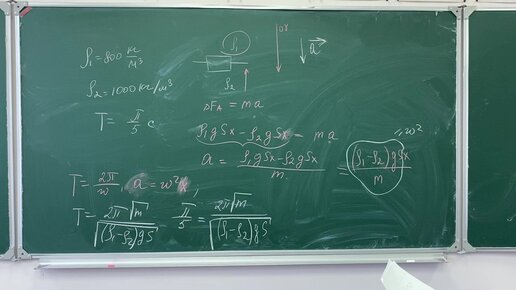 ρ₁=800 кг/м³
ρ₂=1000кг/м³
T= π/5 c
ρ₁
ρ₂
a⃗
ΔF_A = ma
ρ₁gSx - ρ₂gSx = ma
a = (ρ₁gSx-ρ₂gSx)/m = ((ρ₁-ρ₂)gSx)/m
=ω²
T= 2π/ω, a=ω²x,
T= 2π√m/√((ρ₁-ρ₂)gS) π/5 = 2π√m/√((ρ₁-ρ₂)gS)